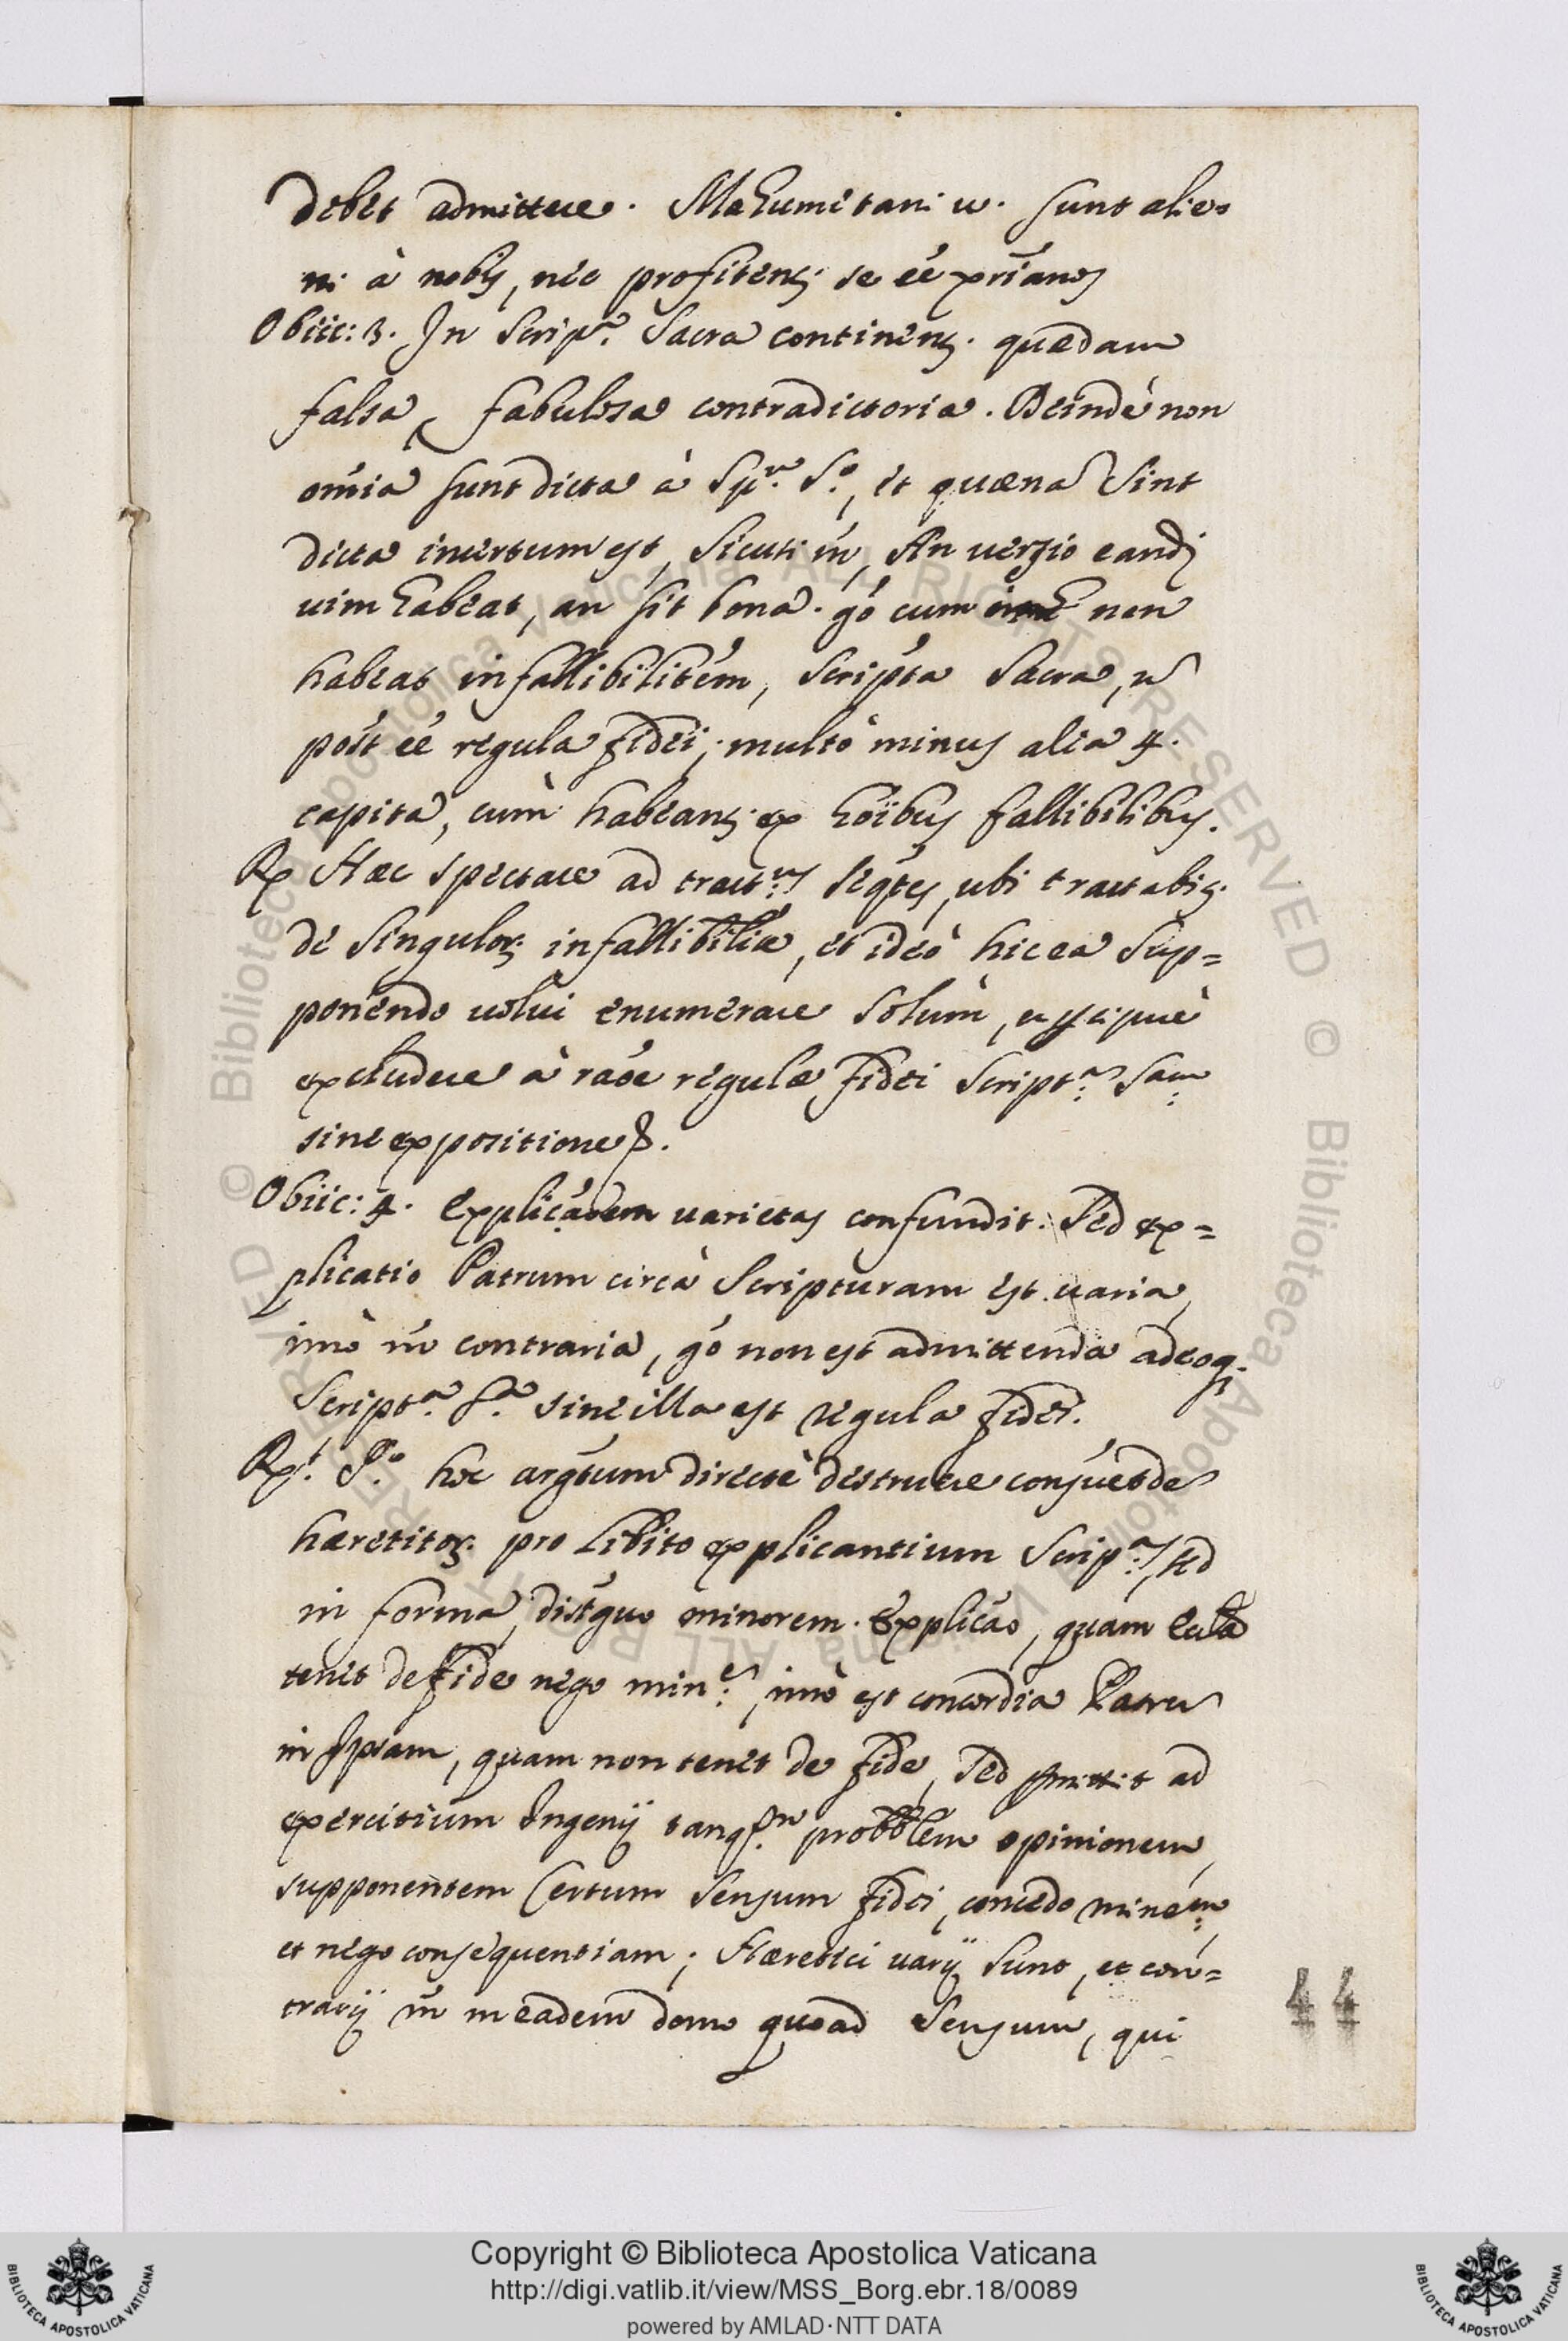 debet admittere. Mahumetani u. sunt alie=
ni à nobis, nec profitent se eé xriános
Obiic: 3. In Scrip.ra Sacra continent. quædam
falsa, fabulosa contradictoria. Deinde non
omía sunt dicta à Sp.u S.o, et quæna sint
dicta incertum est, sicuti m̃, An versio eandẽ
uim habeat, an sit bona. gó cum non
habeat infallibilitém, scripta Sacra, ñ
póst eé regula fidei; multò minus alia 4.
capita, cum habeant ex hoíbus fallibilibus.
Rx Hæc spectare ad tract.us seqt̃es, ubi tractabit
de singulor; infallibiliã, et ideò hic ea sup=
ponendo uolui enumerare solùm, excludere
à ráoe regulæ fidei Script.ra Sam
sine expositione P.
Obiic: 4. Explicáoem uarietas confundit. Sed ex=
plicatio Patrum circa Scripturam est uaria,
imò m̃ contraria, gó non est admittenda adeoq;
Script.a S.a sine illa est regula fidei.
Rx.t P.o hoc argt̃um directè destruere consúetde
hæretitor; pro libito explicantium Scrip.a, sed
in forma, distg̃uo minorem. Explicáo, quam Ecla
tenet de fide nego min.e, imò est concordia Patrũ
in ipsam, quam non tenet de fide, sed pmittit ad
exercitium Ingenij tanq.m probblém opinionem,
supponentem Certum sensum fidei, concedo minem
et nego consequentiam; Hæretici uarij sunt, et con=
trarij m̃ in eadem domo quoad sensum, qui
44
© Biblioteca Apostolica Vaticana ALL RIGHTS RESERVED
© Biblioteca Apostolica Vaticana ALL RIGHTS RESERVED
Copyright © Biblioteca Apostolica Vaticana
http://digi.vatlib.it/view/MSS_Borg.ebr.18/0089
powered by AMLAD·NTT DATA
BIBLIOTECA APOSTOLICA VATICANA
BIBLIOTECA APOSTOLICA VATICANA